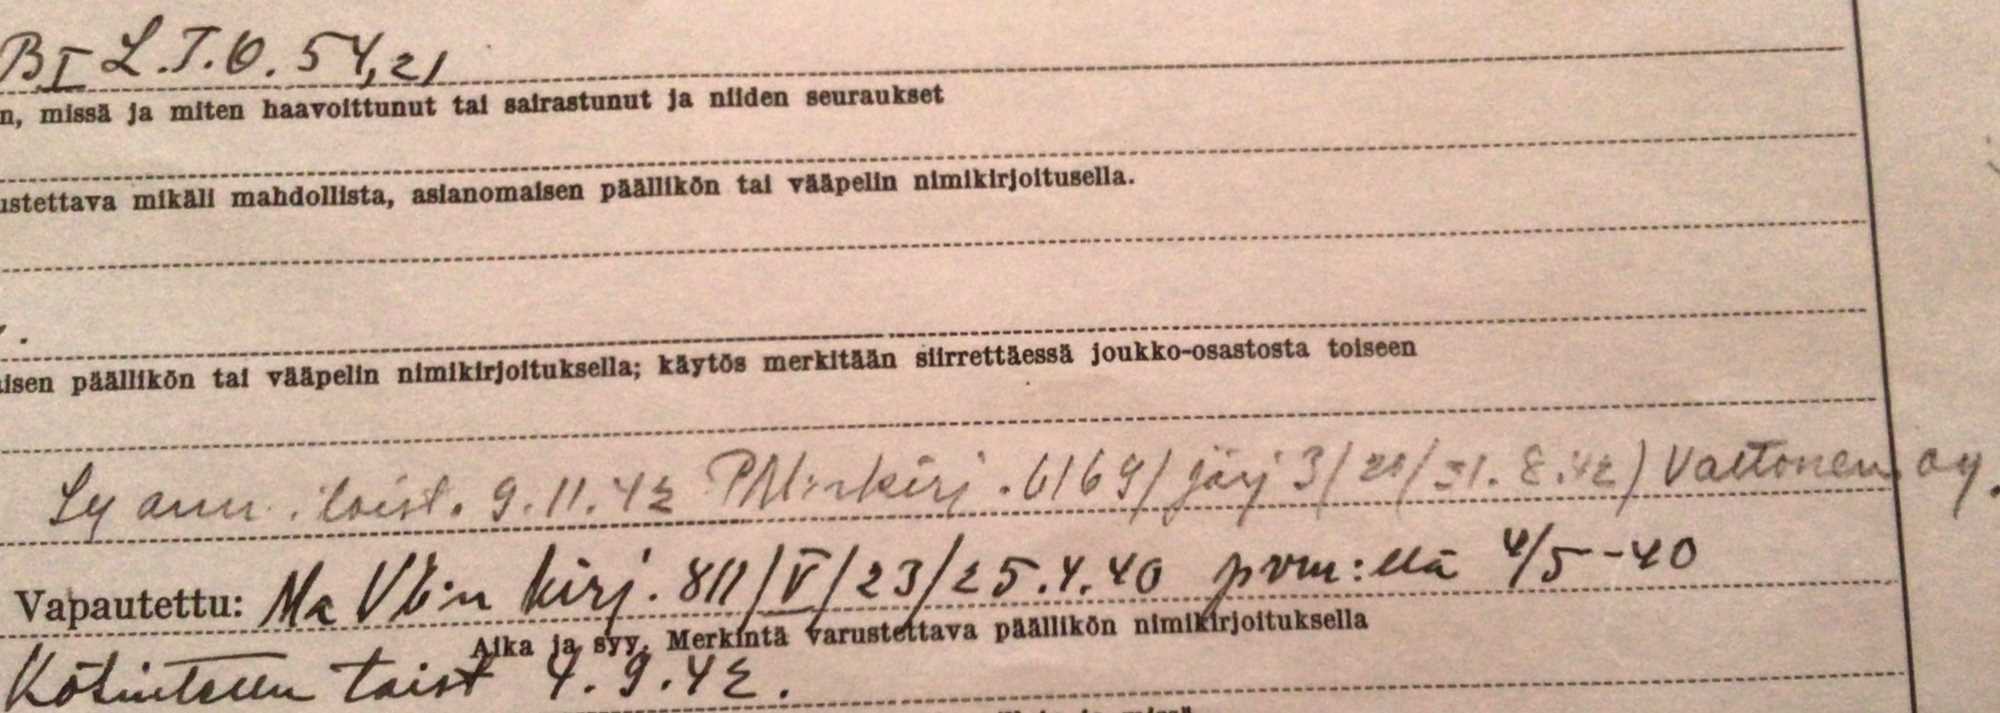 BI L.T.O. 54,21
n, missä ja miten haavoittunut tai sairastunut ja niiden seuraukset
ustettava mikäli mahdollista, asianomaisen päällikön tai vääpelin nimikirjoitusella.
isen päällikön tai vääpelin nimikirjoituksella; käytös merkitään siirrettäessä joukko-osastosta toiseen
Ly ann. toist. 9.11.42 PM:n kirj. 6169/järj 3/21/31.8.42) Valtonen
Vapautettu: Ma VE:n kirj. 811/V/23/25.4.40 pvm:llä 4/5-40
Aika ja syy. Merkintä varustettava päällikön nimikirjoituksella
Kotiutettu toist 4.9.42.